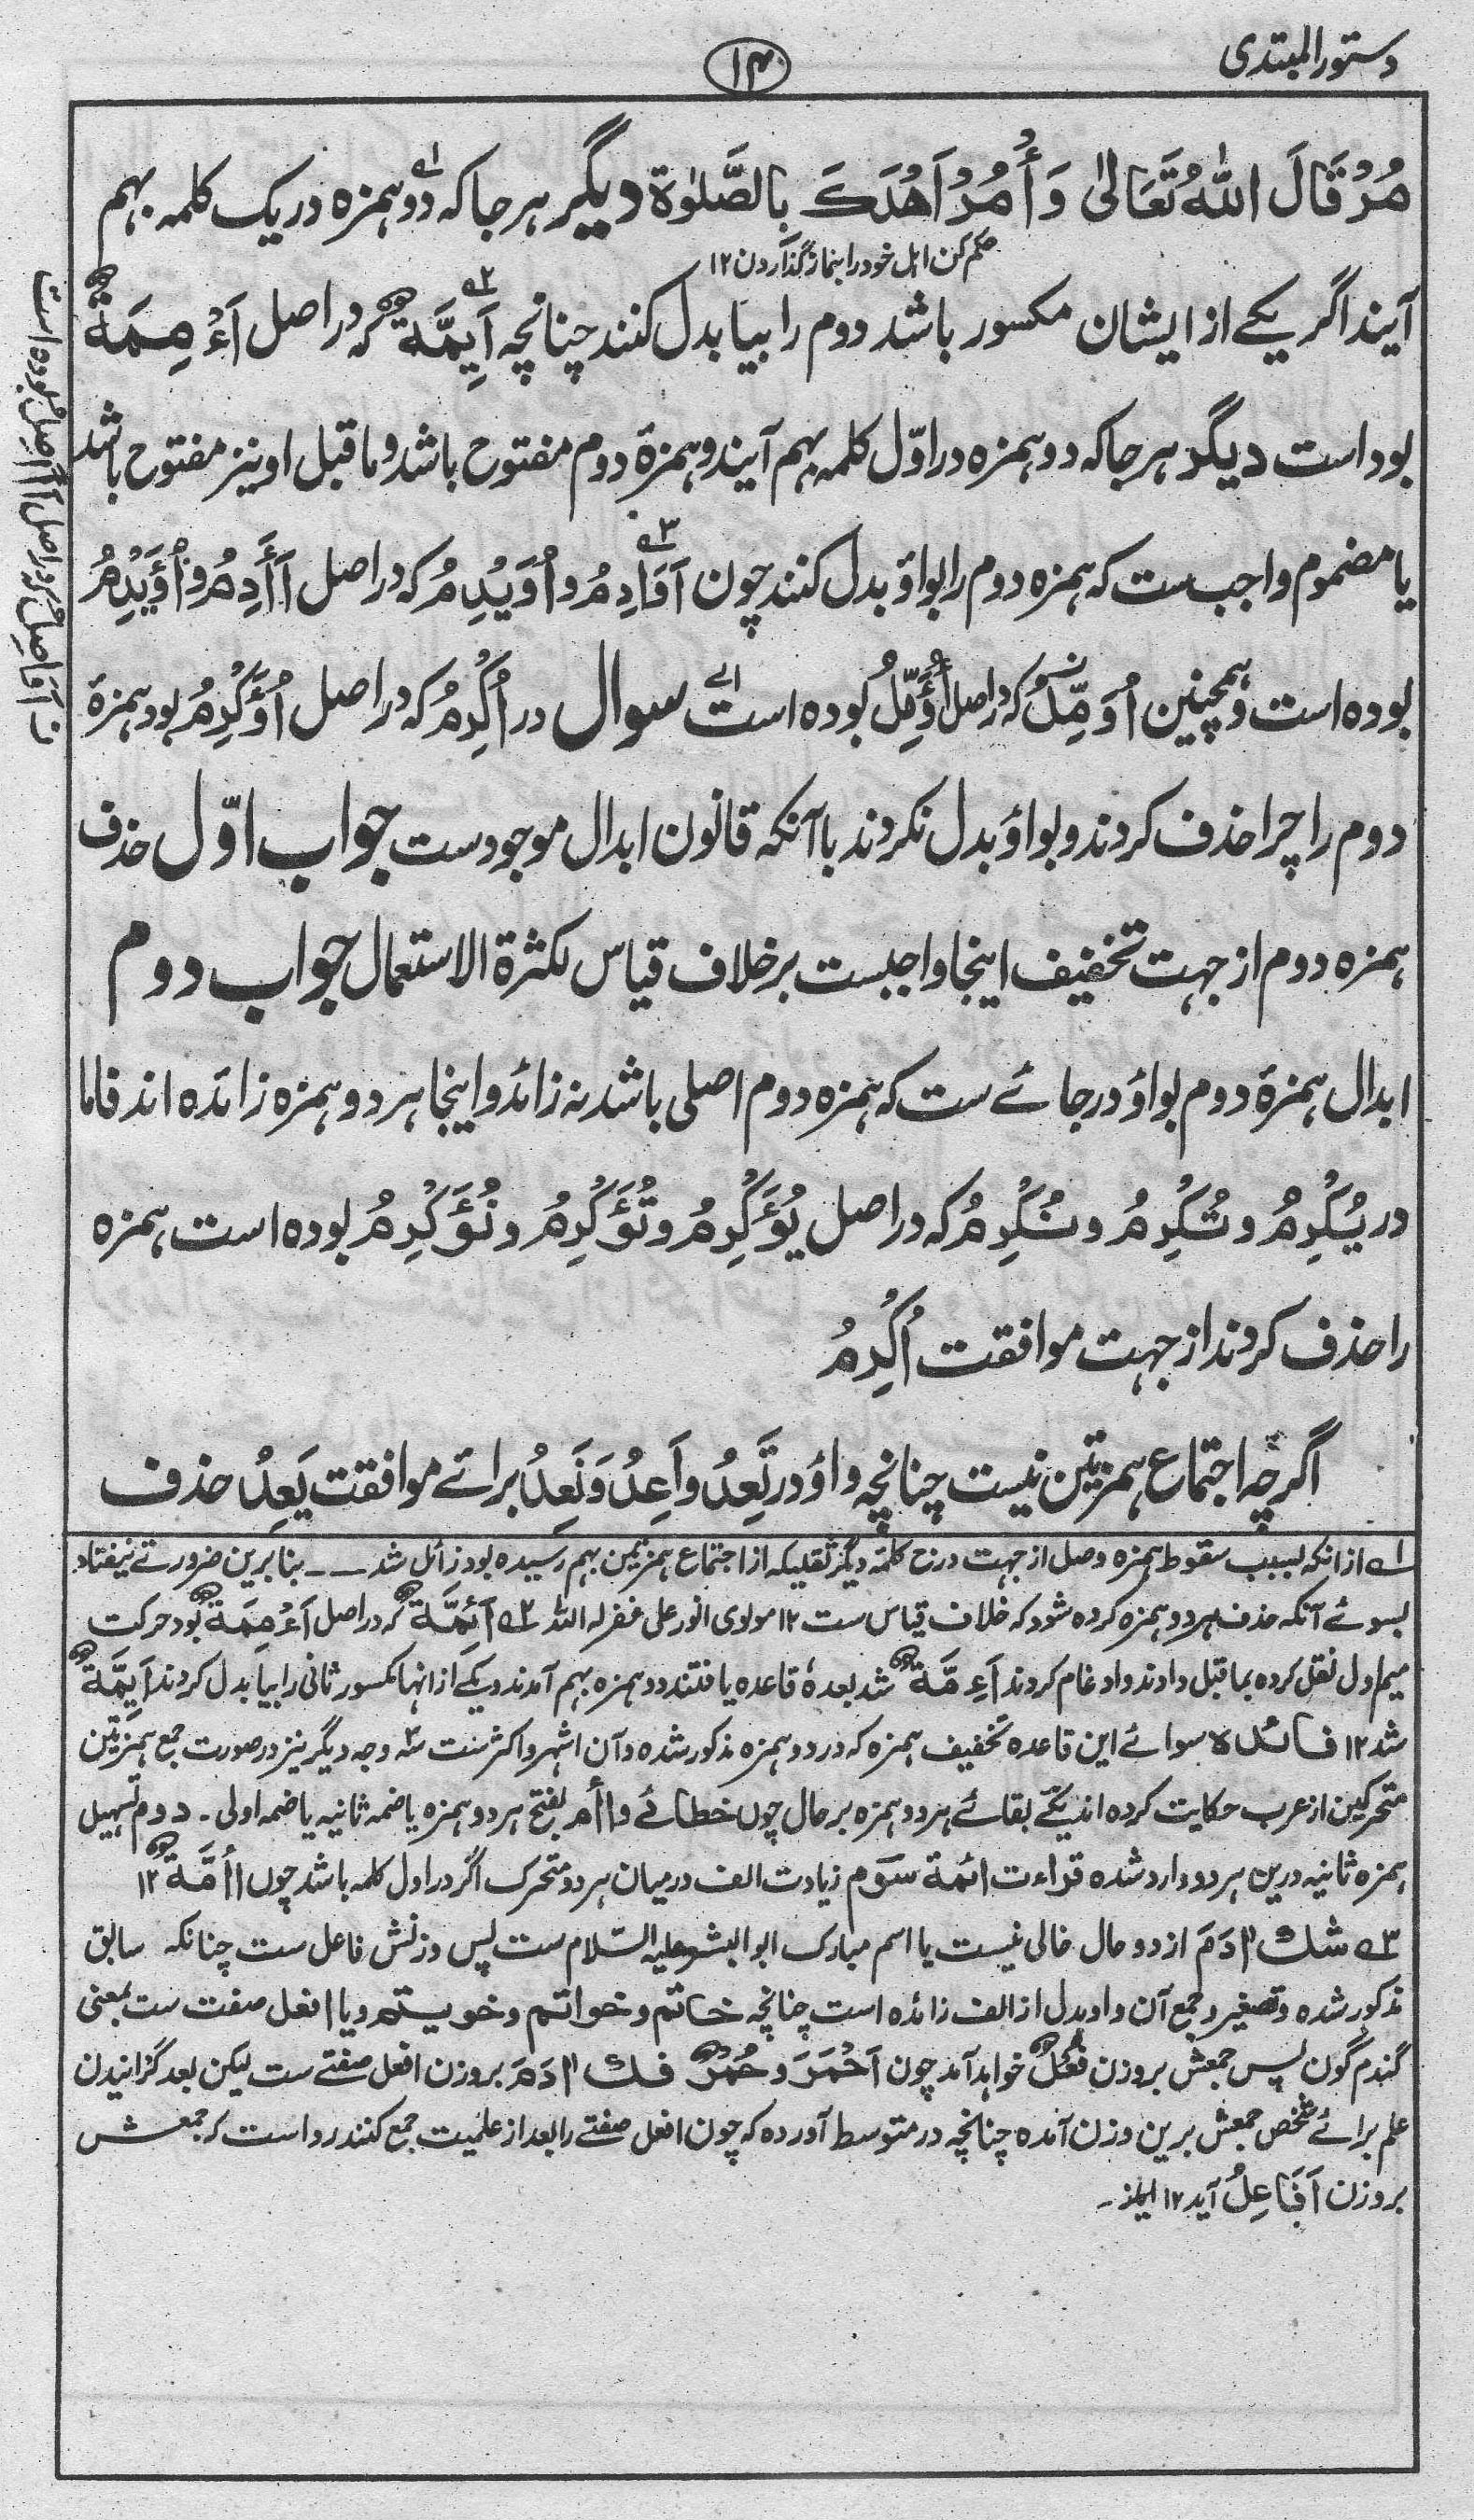 دستور المبتدی
۱۴
مُرْ قَالَ اللهُ تَعَالىٰ وَأْمُرْ اَهْلَكَ بِالصَّلٰوة دیگر ہر جا کہ دو ہمزہ در یک کلمہ بہم
حکم کن اہل خود را بنماز گذاردن ۱۲
آیند اگر یکے از ایشان مکسور باشد دوم را بیا بدل کنند چنانچہ اَیِمَّةٌ کہ در اصل اَءْمِمَةٌ
بود است دیگر ہر جا کہ دو ہمزہ در اوّل کلمہ بہم آیند و ہمزۂ دوم مفتوح باشد و ماقبل او نیز مفتوح باشد
یا مضموم واجب ست کہ ہمزہ دوم را بواؤ بدل کنند چون اَوَادِمُ و اُوَیْدِمُ کہ در اصل اَأَادِمُ و اُؤَیْدِمُ
بودہ است و ہمچنین اُوَمِّلُ کہ در اصل اُؤَمِّلُ بودہ است سوال در اُكْرِمُ کہ در اصل اُؤَكْرِمُ بود ہمزۂ
دوم را چرا حذف کردند و بواؤ بدل نکردند با آنکہ قانون ابدال موجودست جواب اوّل حذف
ہمزہ دوم از جہت تخفیف اینجا واجبست بر خلاف قیاس لکثرة الاستعمال جواب دوم
ابدال ہمزۂ دوم بواؤ در جائے ست کہ ہمزہ دوم اصلی باشد نہ زائد و اینجا ہر دو ہمزہ زائدہ اند فاما
در یُكْرِمُ و تُكْرِمُ و نُكْرِمُ کہ در اصل یُؤَكْرِمُ و تُؤَكْرِمُ و نُؤَكْرِمُ بودہ است ہمزہ
را حذف کردند از جہت موافقت اُكْرِمُ
اگرچہ اجتماع ہمزتین نیست چنانچہ واؤ در تَعِدُ و اَعِدُ وَ نَعِدُ برائے موافقت یَعِدُ حذف
۱ ازانکہ بسبب سقوط ہمزہ وصل از جہت درج کلمۂ دیگر ثقلیکہ از اجتماع ہمزتین بہم رسیدہ بود زائل شد ـــ بنا برین ضرورتے نیفتاد
بسوئے آنکہ حذف ہر دو ہمزہ کردہ شود کہ خلاف قیاس ست ۱۲ مولوی انور علی غفر لہ اللہ ۲ اَئِمَّةٌ کہ در اصل اَءْمِمَةٌ بود حرکت
میم اول نقل کردہ بماقبل دادند و ادغام کردند اَءِمَّةٌ شد بعدہٗ قاعدہ یافتند دو ہمزہ بہم آمدند و یکے از انہا مکسور ثانی را بیا بدل کردند اَیِمَّةٌ
شد ۱۲ فائدہ سوائے این قاعدہ تخفیف ہمزہ کہ در دو ہمزہ مذکور شدہ و آن اشہر و اکثرست سہ وجہ دیگر نیز در صورت جمع ہمزتین
متحرکین از عرب حکایت کردہ اند یکے بقائے ہر دو ہمزہ بر حال چوں خطائے و اأمر بفتح ہر دو ہمزہ یا ضمہ ثانیہ یا ضمہ اولی ـ دوم تسہیل
ہمزہ ثانیہ درین ہر دو وارد شدہ قراءت ائمة سوم زیادت الف درمیان ہر دو متحرک اگر در اول کلمہ باشد چوں اأمَّةٌ ۱۲
۳ شك اٰدَمَ از دو حال خالی نیست یا اسم مبارک ابو البشر علیہ السّلام ست پس وزنش فاعل ست چنانکہ سابق
مذکور شدہ و تصغیر و جمع آن واو بدل از الف زائدہ است چنانچہ خاتم و خواتم و خویتم و یا افعل صفت ست بمعنی
گندم گون پس جمعش بروزن فُعْلٌ خواہد آمد چون اَحْمَرَ و حُمْرٌ فك اٰدَمَ بروزن افعل صفتے ست لیکن بعد گزانیدن
علم برائے شخص جمعش برین وزن آمدہ چنانچہ در متوسط آوردہ کہ چون افعل صفتے را بعد از علمیت جمع کنند رواست کہ جمعش
بروزن اَفَاعِلُ آید ۱۲